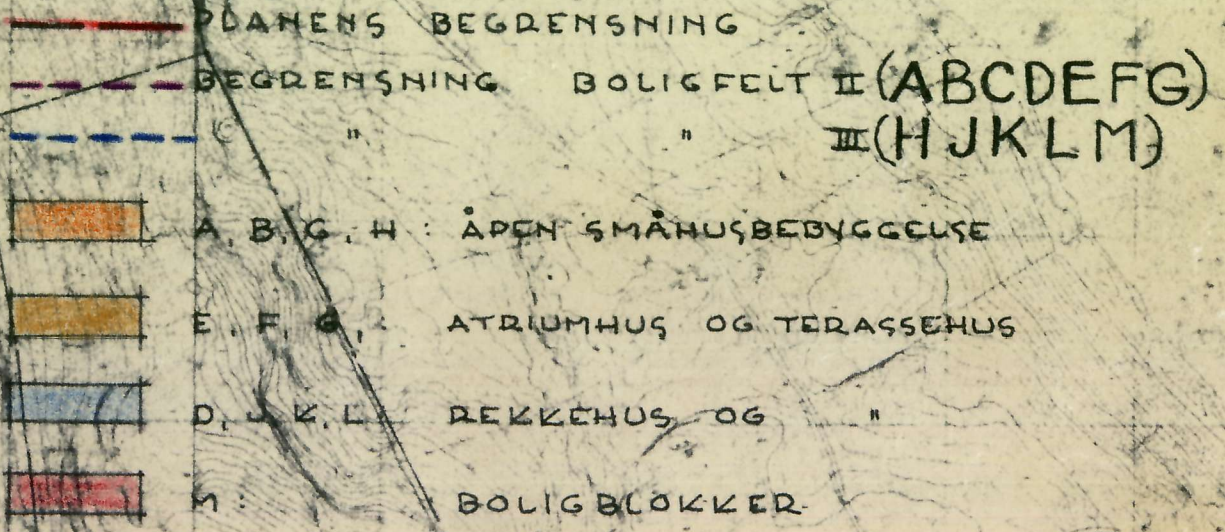 PLANENS BEGRENSNING
BEGRENSNING BOLIGFELT II (ABCDEFG)
" " III (HJKLM)
A, B, G, H : ÅPEN SMÅHUSBEBYGGELSE
E, F, G, : ATRIUMHUS OG TERASSEHUS
D, J, K, L : REKKEHUS OG "
M : BOLIGBLOKKER